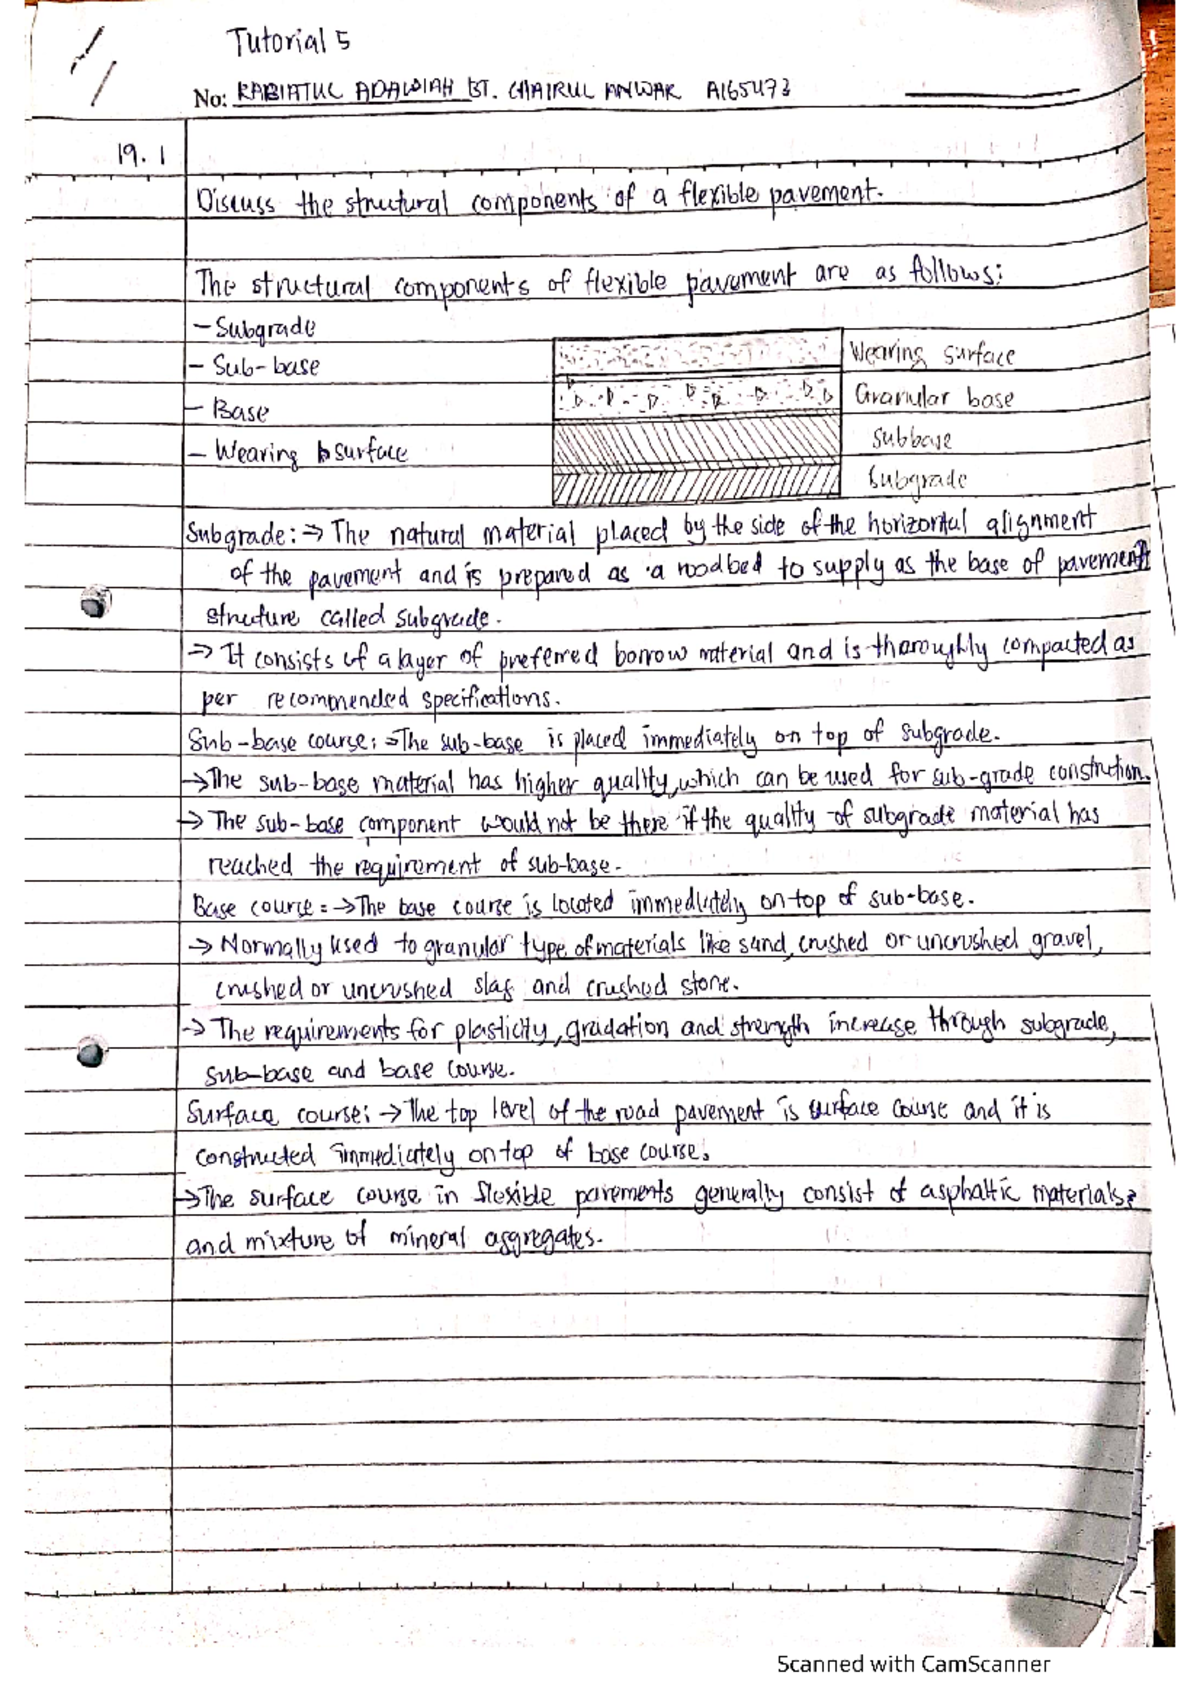 Tutorial 5
No: RABIATUL ADAWIAH BT. CHAIRUL ANWAR A165473
19.1
Discuss the structural components of a flexible pavement.
The structural components of flexible pavement are as follows:
- Subgrade
- Sub-base
- Base
- Wearing surface
Wearing surface
Granular base
Subbase
Subgrade
Subgrade: → The natural material placed by the side of the horizontal alignment
of the pavement and is prepared as a roadbed to supply as the base of pavement
structure called subgrade.
→ It consists of a layer of preferred borrow material and is thoroughly compacted as
per recommended specifications.
Sub-base course: → The sub-base is placed immediately on top of subgrade.
→ The sub-base material has higher quality, which can be used for sub-grade constrution.
→ The sub-base component would not be there if the quality of subgrade material has
reached the requirement of sub-base.
Base course: → The base course is located immediately on top of sub-base.
→ Normally used to granular type of materials like sand, crushed or uncrushed gravel,
crushed or uncrushed slag and crushed stone.
→ The requirements for plasticity, gradation and strength increase through subgrade,
sub-base and base course.
Surface course: → The top level of the road pavement is surface course and it is
constructed immediately on top of base course.
→ The surface course in flexible pavements generally consist of asphaltic materials
and mixture of mineral aggregates.
Scanned with CamScanner